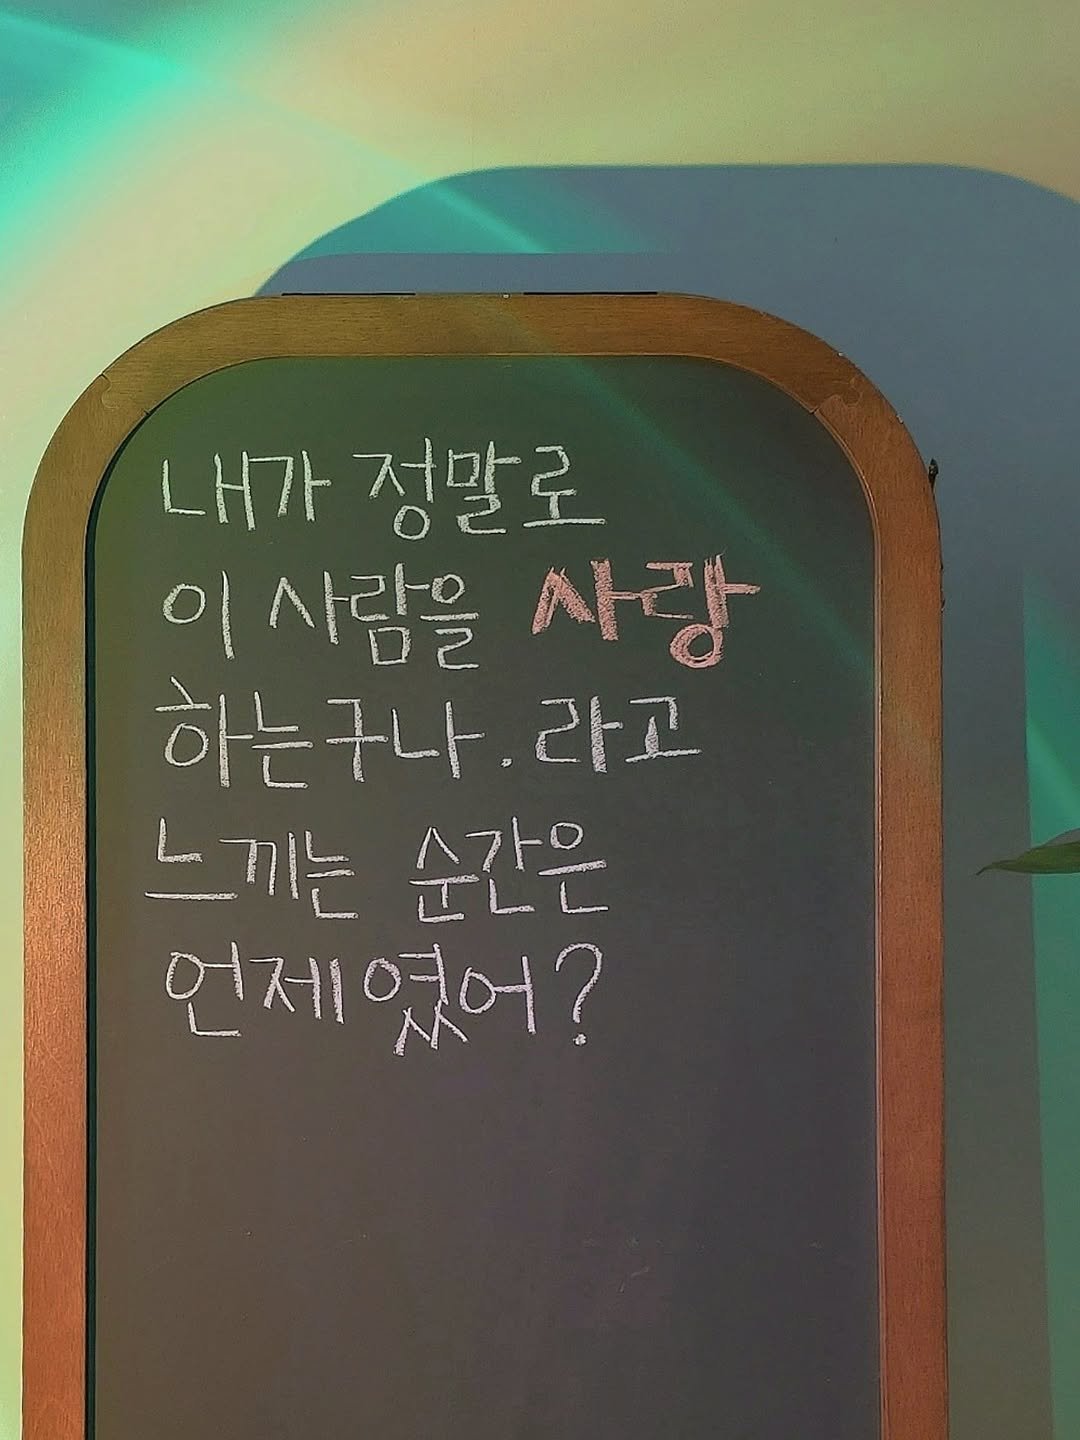 내가 정말로
이 사람을 사랑
하는구나. 라고
느끼는 순간은
언제였어?